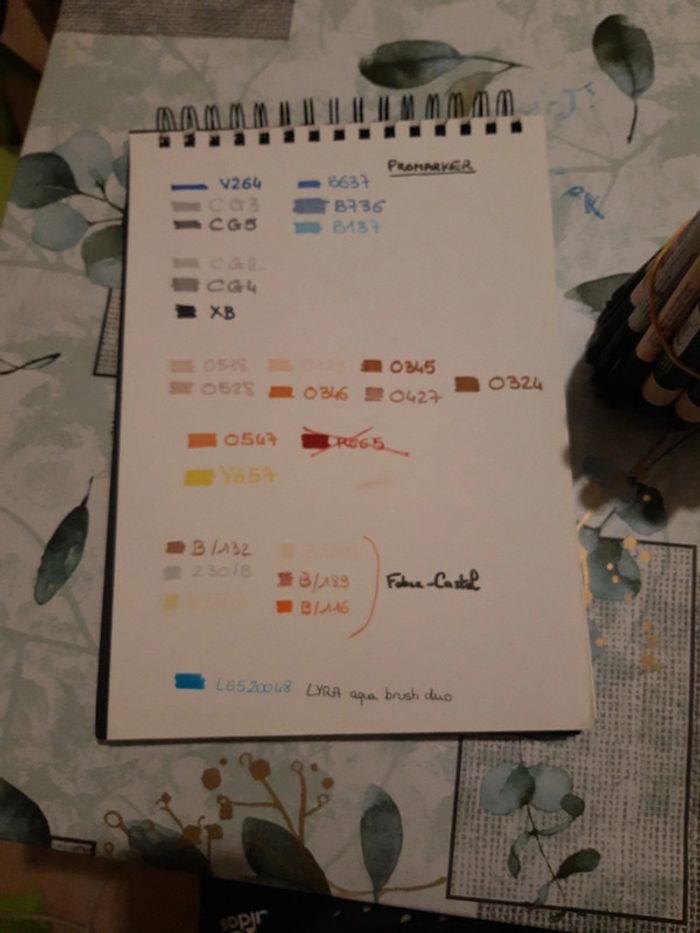 PROMARKER
V264 B637
CG3 B736
CG5 B137
CG2
CG4
XB
O518 O345
O528 O346 O427 O324
O547 R665
Y657
B/132
230/B B/189
B/116
Faber-Castel
L6520048 LYRA aqua brush duo
adidas